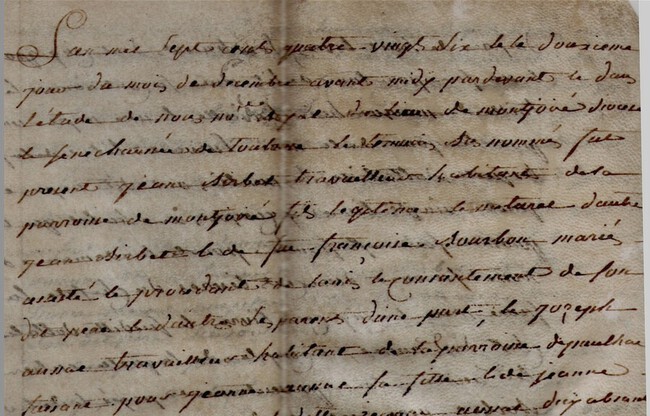 L'an mil sept cent quatre vingt six le douzieme
jour du mois de decembre avant midy pardevant et dans
l'étude de nous no.re royal du lieu de montjoiré diocese
et senechaussée de toulouse et temoins bas nommés fut
present jean sirbet travailleur habitant de la
parroisse de montjoiré fils legitime et naturel d'autre
jean sirbet et de feu françoise bourbon mariés
assisté et procedant de l'avis et consantement de son
dit pere et d'autres parens d'une part, et joseph
travailleur habitant de la parroisse de paulhac
faisant pour jeanne sa fille et de jeanne